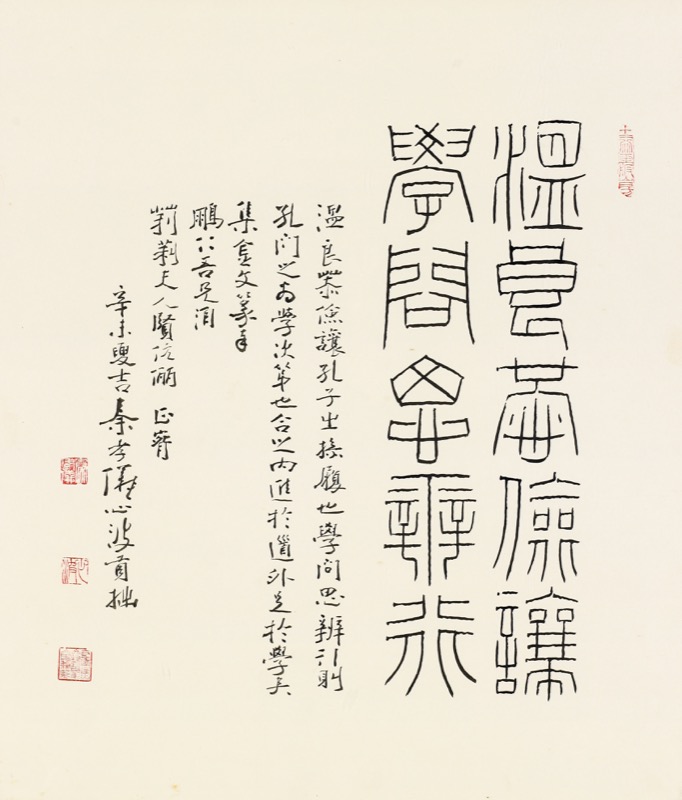 溫良恭儉讓
學問思辨行
溫良恭儉讓孔子之操履也學問思辨行則
孔門之為學次第也合之內進於道外足於學矣
集金文篆奉
鵬仁吾兄
莉莉夫人賢伉儷 正腕
辛未夏吉秦孝儀心波貢拙